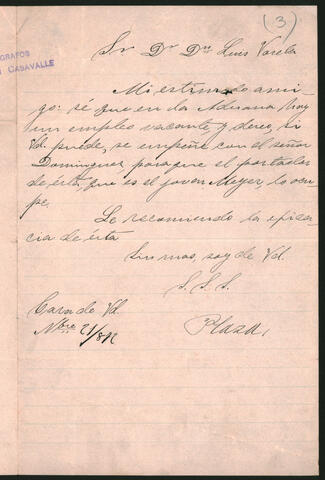 (3)
GRAFOS
CASAVALLE
Sr Dr Dn Luis Varela
Mi estimado ami-
go: sé que en la Aduana hay
un empleo vacante, y deseo, si
Vd. puede, se empeñe con el señor
Dominguez para que el portador
de ésta, que es el joven Meyer, lo ocu-
pe.
Le recomiendo la efica-
cia de ésta
Sin mas, soy de Vd.
S. S. S.
Plaza,
Casa de Vd.
Nbre 21/